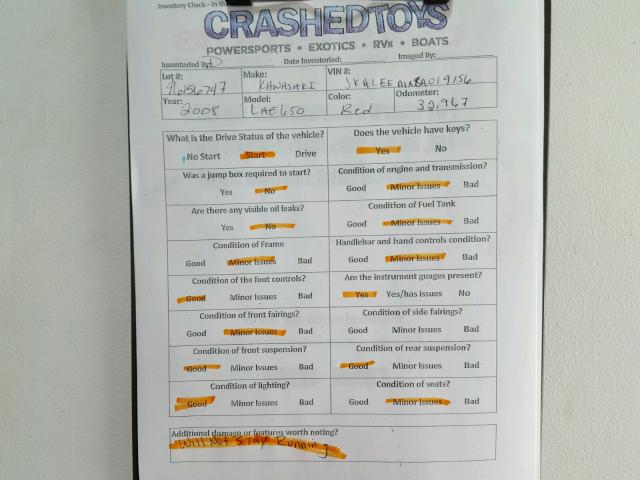 Inventory Check - In Sh
CRASHEDTOYS
POWERSPORTS • EXOTICS • RVs • BOATS
Inventoried By: Date Inventoried: Imaged By:
Lot #: Make: VIN #:
KAWASAKI
Year: Model: Color: Odometer:
2008 Red 32,967
What is the Drive Status of the vehicle? Does the vehicle have keys?
No Start Start Drive Yes No
Was a jump box required to start? Condition of engine and transmission?
Yes No Good Minor Issues Bad
Are there any visible oil leaks? Condition of Fuel Tank
Yes No Good Minor Issues Bad
Condition of Frame Handlebar and hand controls condition?
Good Minor Issues Bad Good Minor Issues Bad
Condition of the foot controls? Are the instrument guages present?
Good Minor Issues Bad Yes Yes/has issues No
Condition of front fairings? Condition of side fairings?
Good Minor Issues Bad Good Minor Issues Bad
Condition of front suspension? Condition of rear suspension?
Good Minor Issues Bad Good Minor Issues Bad
Condition of lighting? Condition of seats?
Good Minor Issues Bad Good Minor Issues Bad
Additional damage or features worth noting?
Will Not Stay Running